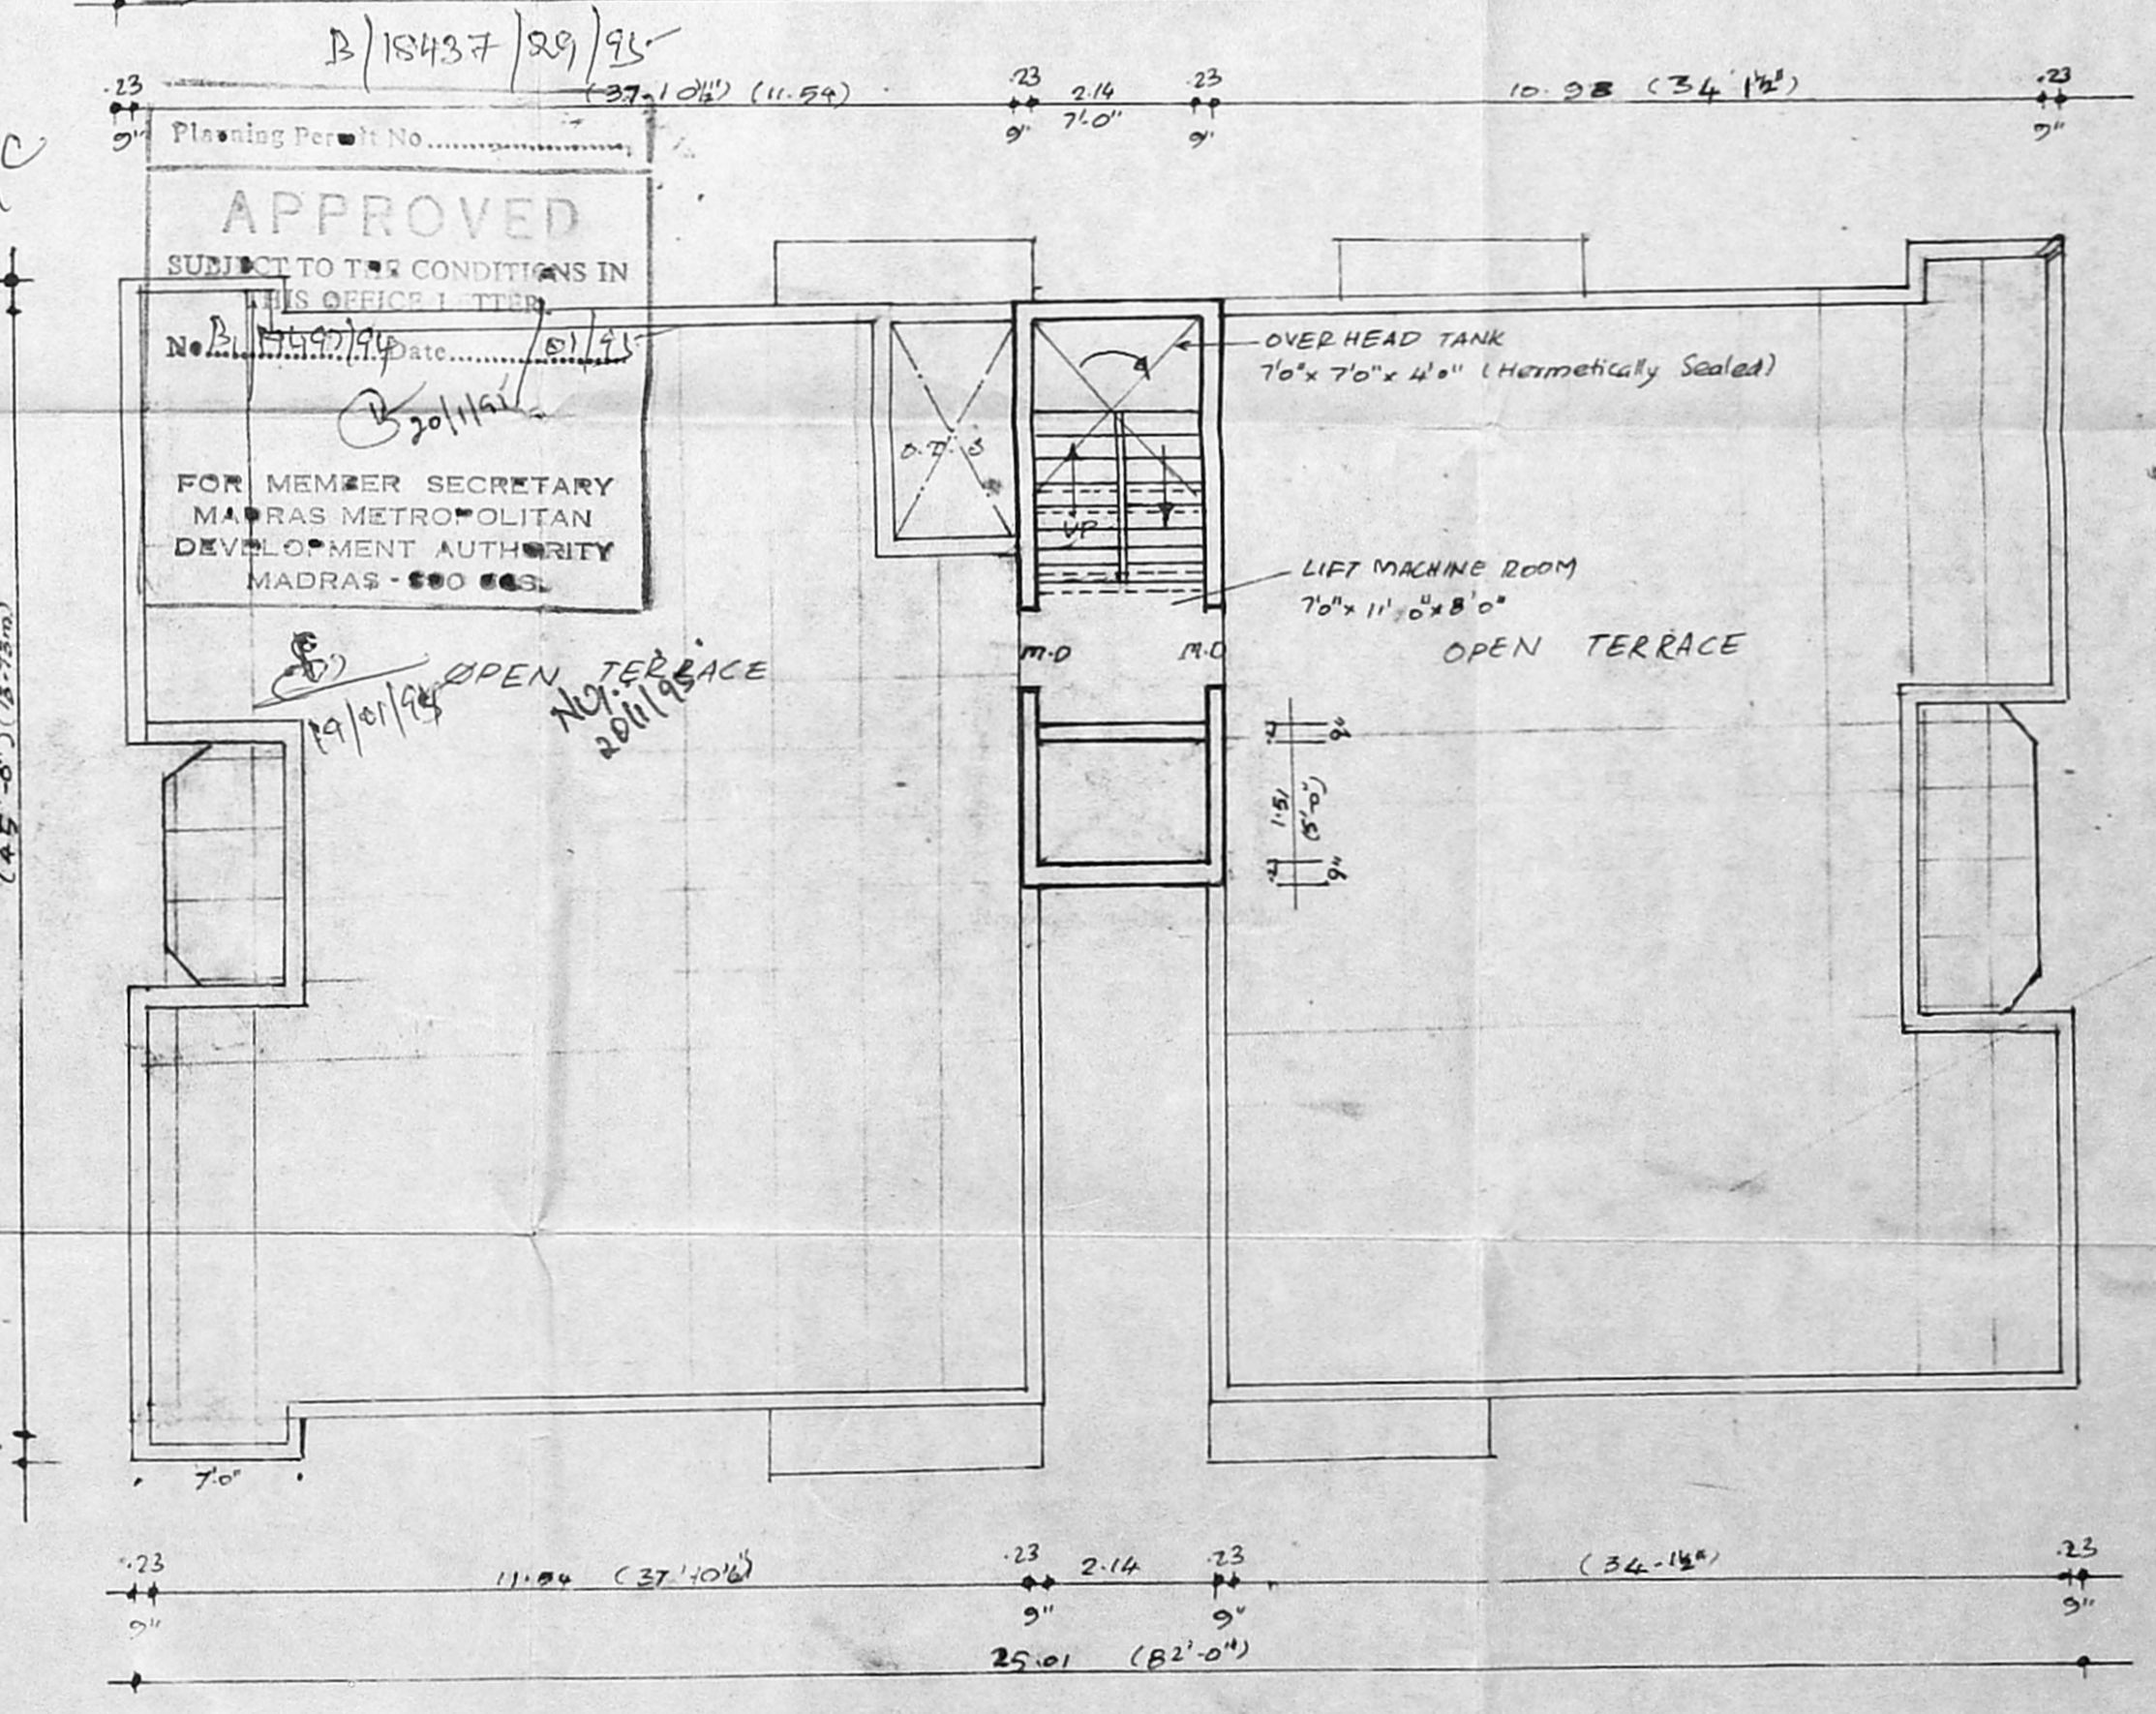 B/15437/29/95
.23 (37-10½") (11.54) .23 2.14 .23 10.98 (34 1½") .23
9" 9" 7'-0" 9" 9"
Planning Permit No
APPROVED
SUBJECT TO THE CONDITIONS IN
THIS OFFICE LETTER
No Date 01/95
20/1/95
FOR MEMBER SECRETARY
MADRAS METROPOLITAN
DEVELOPMENT AUTHORITY
MADRAS -
OVER HEAD TANK
7'0" x 7'0" x 4'0" (Hermetically Sealed)
O.T.S
UP
LIFT MACHINE ROOM
7'0" x 11'0" x 8'0"
M.D M.D
OPEN TERRACE
OPEN TERRACE
19/01/95
20/1/95
9"
1.51
(5'-0")
9"
7'0"
.23 11.54 (37'-10½") .23 2.14 .23 (34-1½") .23
9" 9" 9" 9"
25.01 (82'-0")